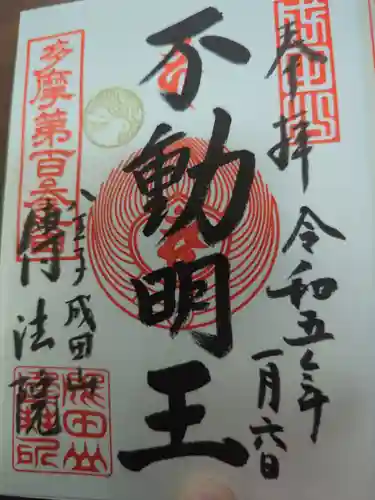 成田山
奉拝
令和五年
一月六日
不動明王
八王子成田山
傳法院
多摩第百